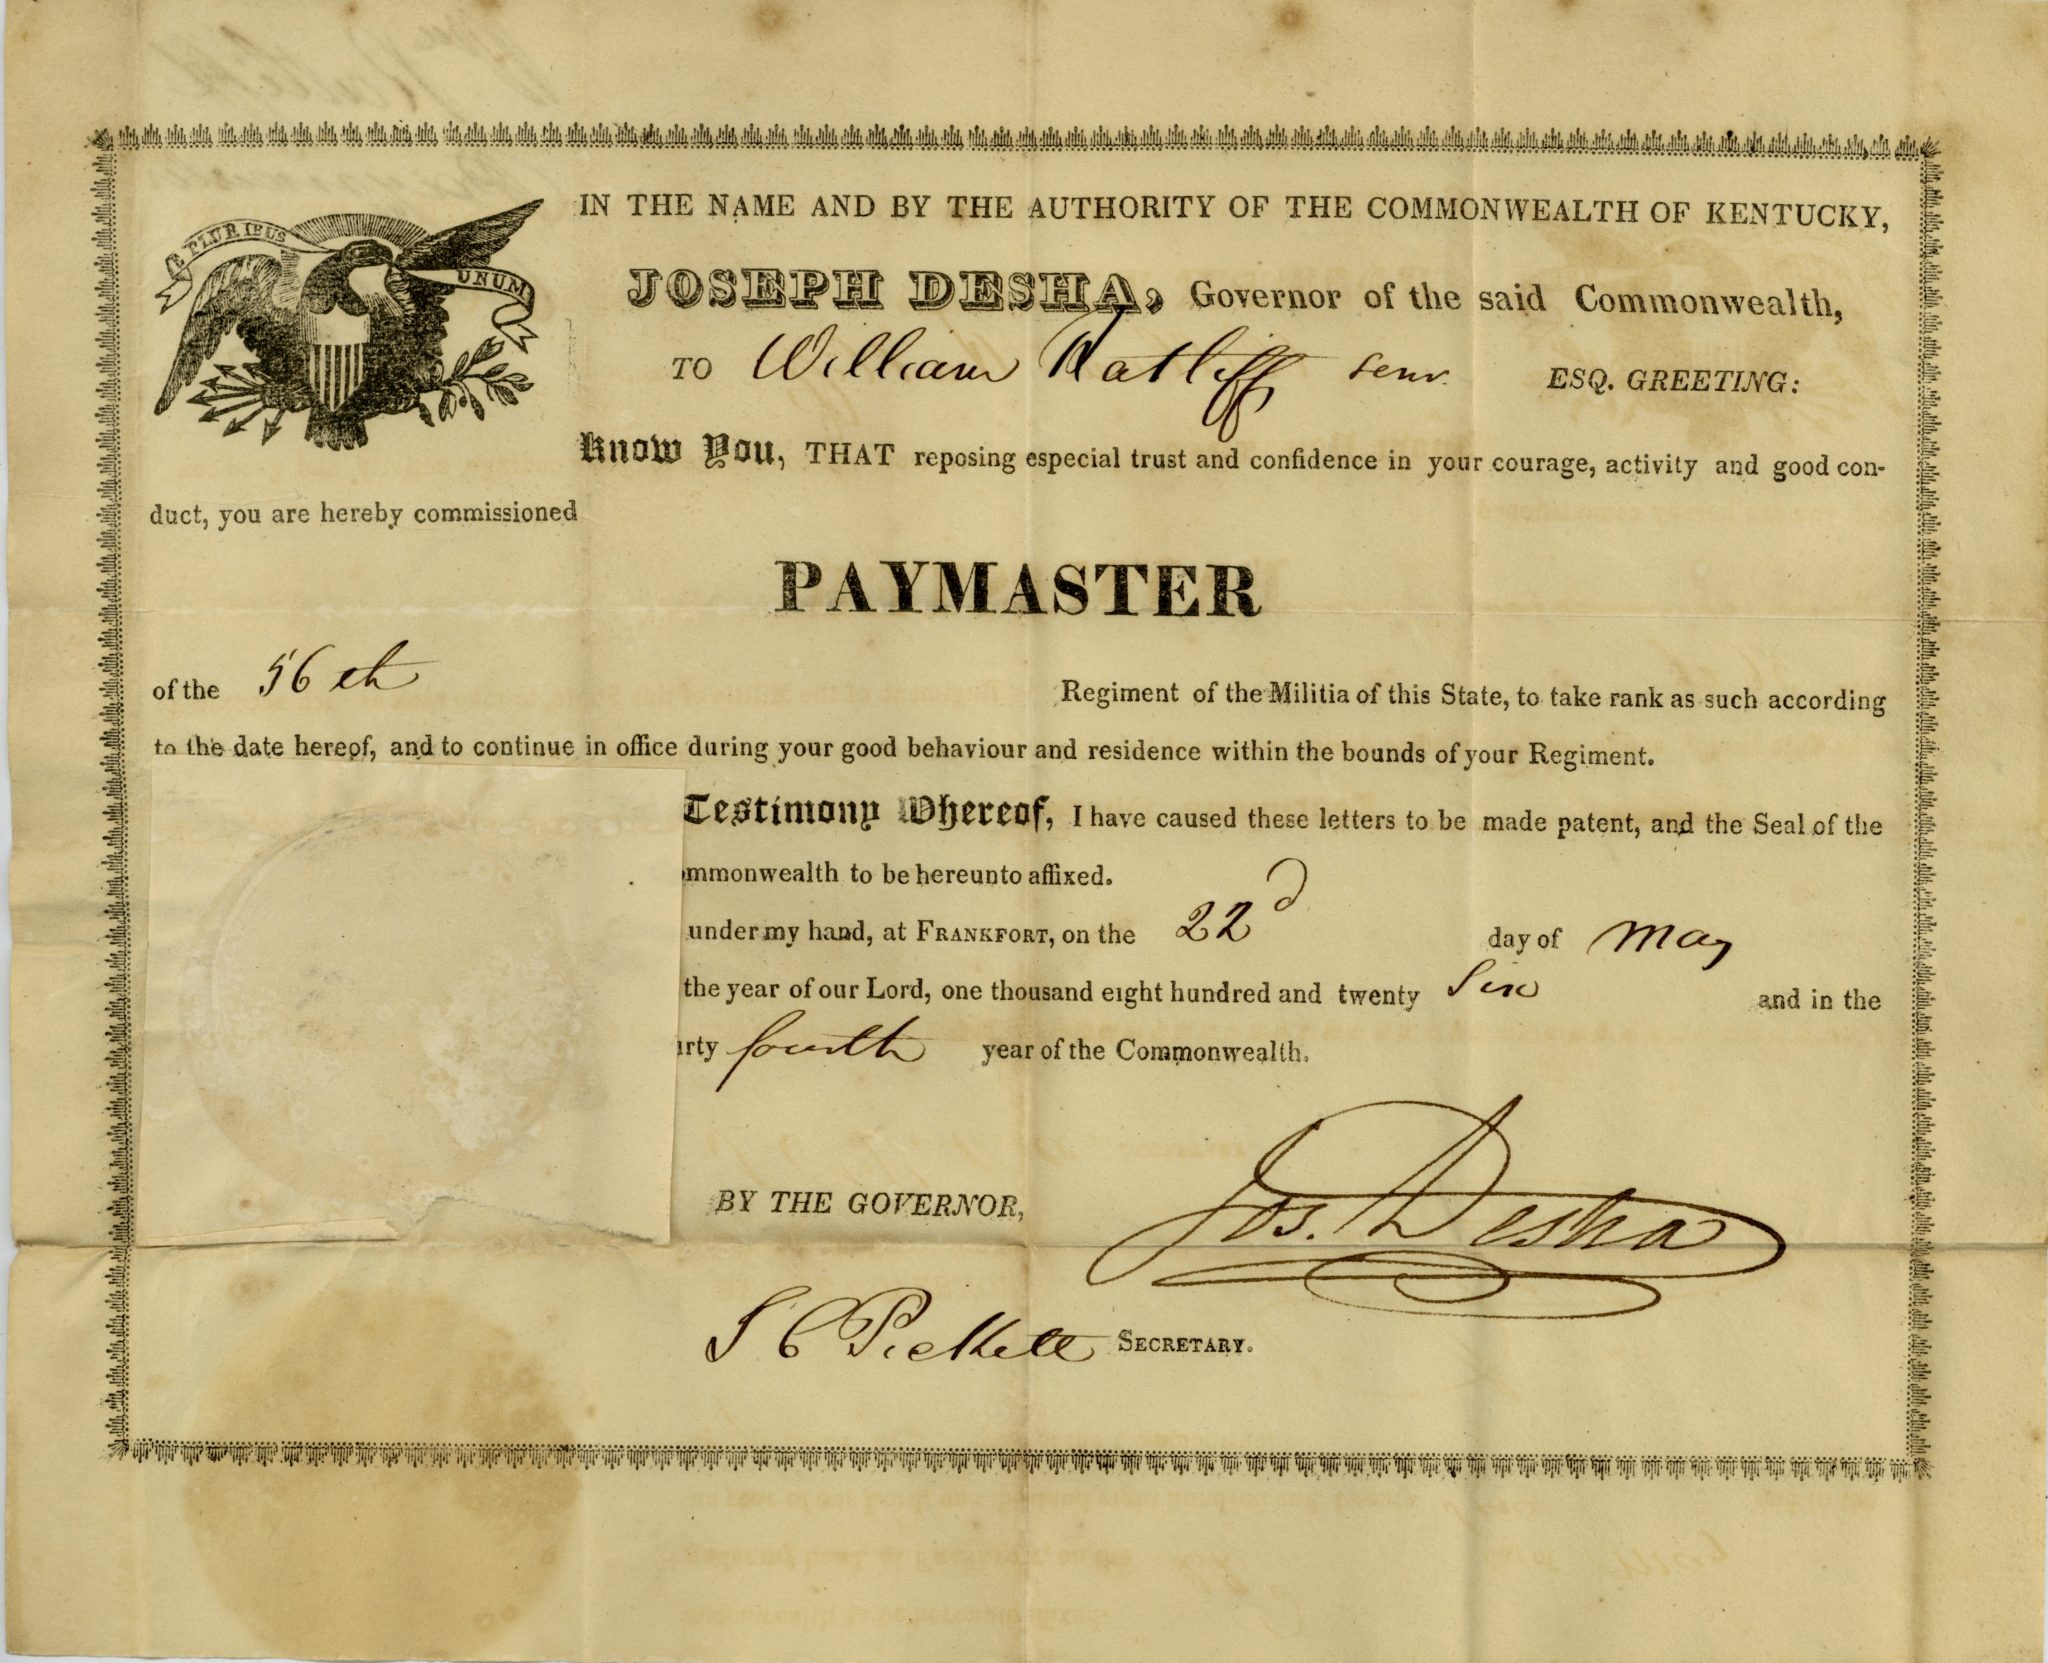 E PLURIBUS
UNUM
IN THE NAME AND BY THE AUTHORITY OF THE COMMONWEALTH OF KENTUCKY,
JOSEPH DESHA, Governor of the said Commonwealth,
TO William Ratliff senr. ESQ. GREETING:
Know You, THAT reposing especial trust and confidence in your courage, activity and good con-
duct, you are hereby commissioned
PAYMASTER
of the 56th Regiment of the Militia of this State, to take rank as such according
to the date hereof, and to continue in office during your good behaviour and residence within the bounds of your Regiment.
Testimony Whereof, I have caused these letters to be made patent, and the Seal of the
ommonwealth to be hereunto affixed.
under my hand, at FRANKFORT, on the 22d day of May
the year of our Lord, one thousand eight hundred and twenty Six and in the
irty fourth year of the Commonwealth.
BY THE GOVERNOR,
Jos. Desha
J C Pickett SECRETARY.